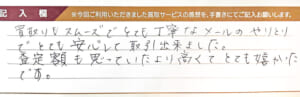 記入欄 ※今回ご利用いただきました買取サービスの感想を、手書きにてご記入お願いします。
買取りもスムーズでとても丁寧なメールのやりとり
でとても安心して取引出来ました。
査定額も思っていたより高くてとても嬉かった
です。